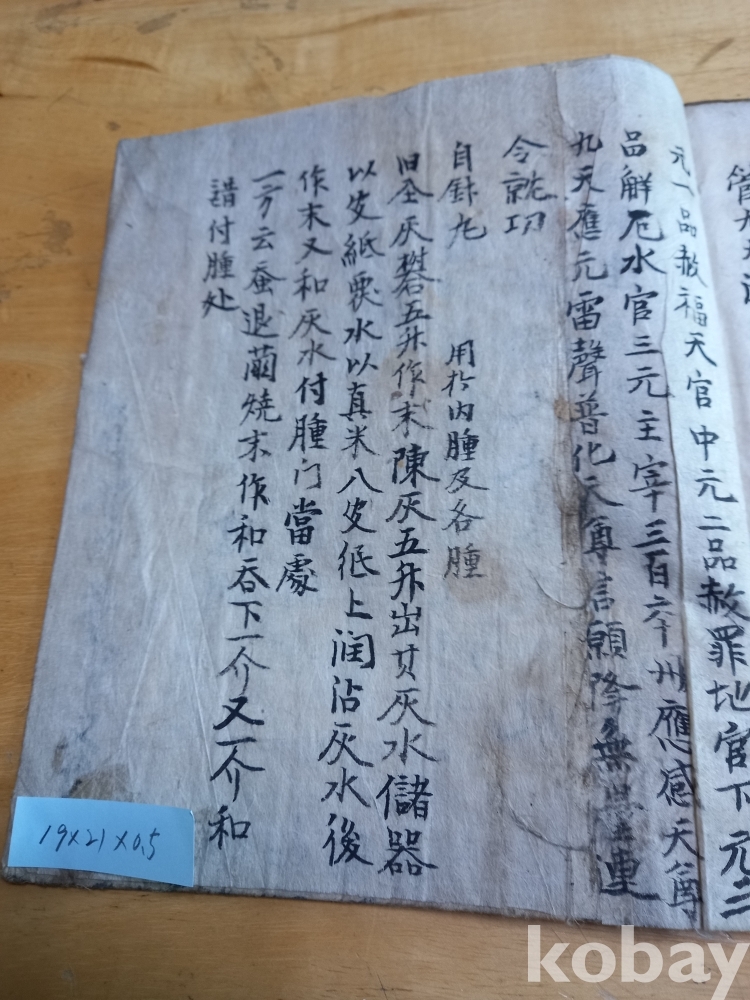 管
元一品赦福天官中元二品赦罪地官下元三
品解厄水官三元主宰三百六十州應感天尊
九天應元雷聲普化天尊言願降無量連
令就功
自鉢丸 用於内腫及各腫
旧全灰礬五升作末陳灰五升出甘灰水儲器
以皮紙褁水以真米八皮紙上润沾灰水後
作末又和灰水付腫门當處
一方云蚕退繭焼末作和吞下一介又一介和
諎付腫处
19×21×0.5
kobay